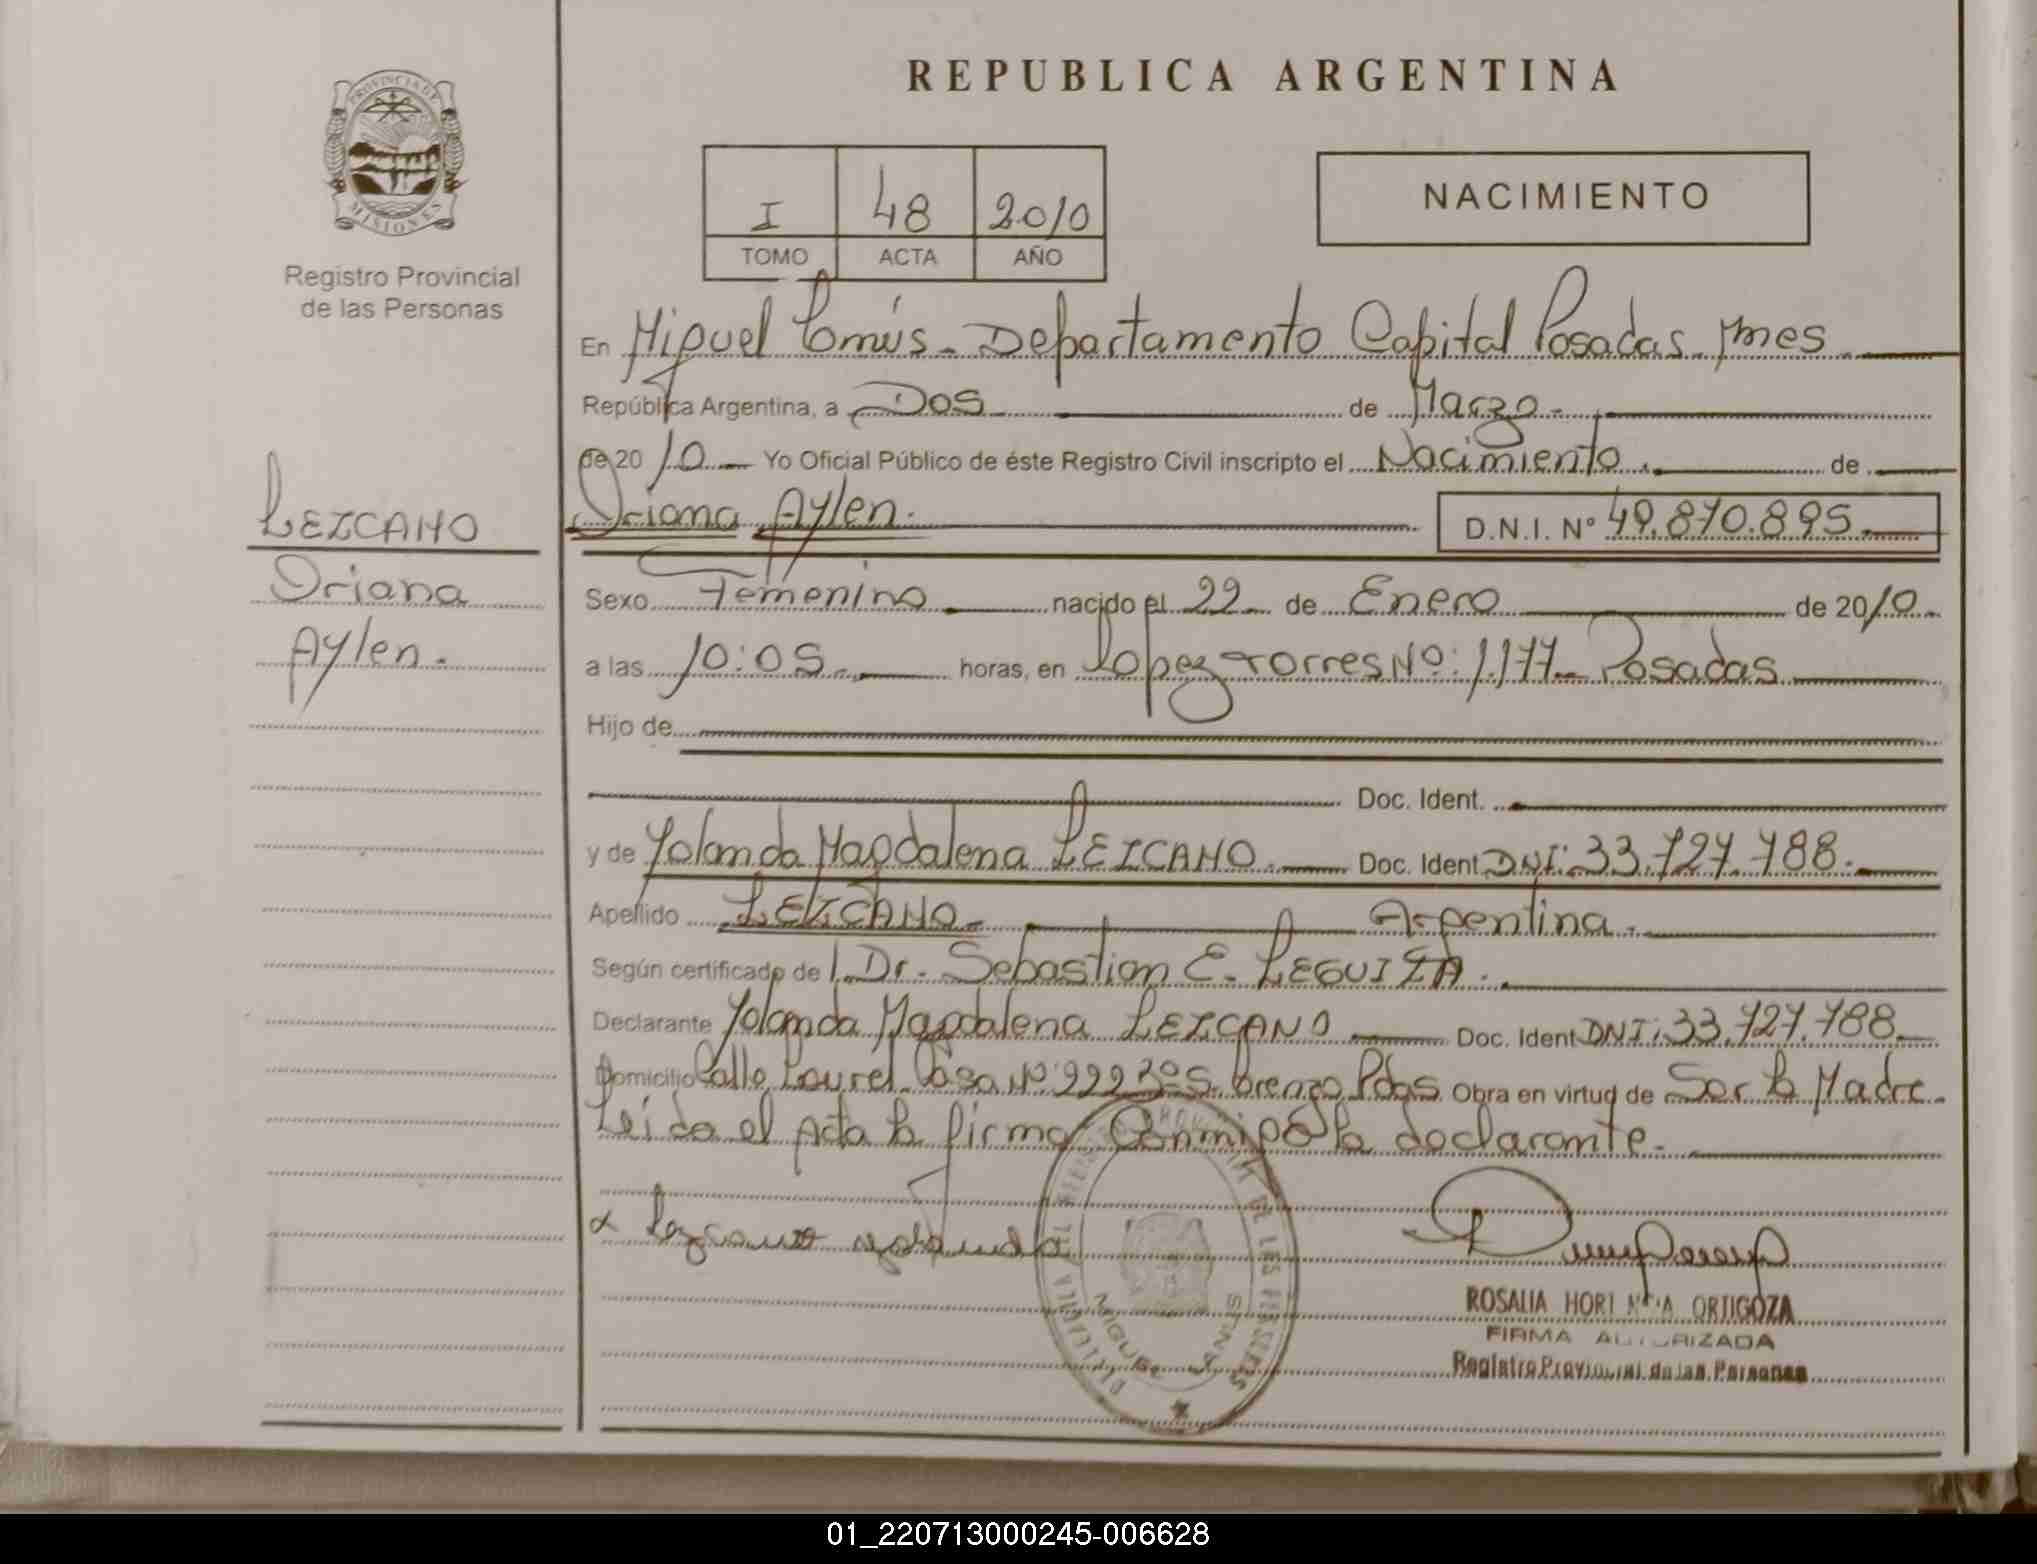 REPUBLICA ARGENTINA
PROVINCIA DE
MISIONES
Registro Provincial
de las Personas
I 48 2010
TOMO ACTA AÑO
NACIMIENTO
En Miguel Lanús - Departamento Capital Posadas Mnes
República Argentina, a Dos de Marzo.
de 2010 Yo Oficial Público de éste Registro Civil inscripto el Nacimiento. de
Oriana Aylen. D.N.I. Nº 49.870.895.
LEZCANO
Oriana
Aylen.
Sexo Femenino nacido el 22 de Enero de 2010
a las 10:05 horas, en Lopez Torres Nº: 1.177 - Posadas
Hijo de
Doc. Ident.
y de Yolanda Magdalena LEZCANO. Doc. Ident DNI: 33.727.788.
Apellido LEZCANO - Argentina.
Según certificado de l Dr. Sebastian E. LEGUIZA.
Declarante Yolanda Magdalena LEZCANO Doc. Ident DNI: 33.727.788.
Domicilio Calle Laurel Casa Nº 222 Obra en virtud de Ser la Madre.
Leída el Acta la firma Conmigo la declarante.
x Lezcano yolanda
MIGUEL LANUS
ROSALIA ORTIGOZA
FIRMA AUTORIZADA
Registro Provincial de las Personas
01_220713000245-006628